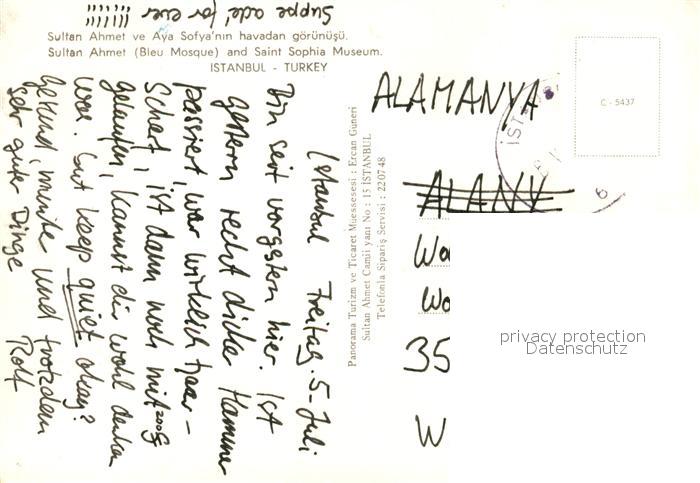 Suppe ade! for ever !!!!!!!
Sultan Ahmet ve Aya Sofya'nın havadan görünüşü.
Sultan Ahmet (Bleu Mosque) and Saint Sophia Museum.
ISTANBUL - TURKEY
Istanbul Freitag. 5. Juli
Bin seit vorgestern hier. Ist
gestern recht dicker Hammer
passiert, war wirklich haar-
scharf, ist dann noch mit 200
gelaufen, kannst dir wohl denken
war. but keep quiet okay?
Gesund, munter und trotzdem
sehr guter Dinge
Rolf
Panorama Turizm ve Ticaret Müessesesi : Ercan Güneri
Sultan Ahmet Camii yanı No : 15 İSTANBUL
Telefonla Sipariş Servisi : 220748
C - 5437
İST
6
ALAMANYA
ALANY
Wa
Wo
35
W
privacy protection
Datenschutz